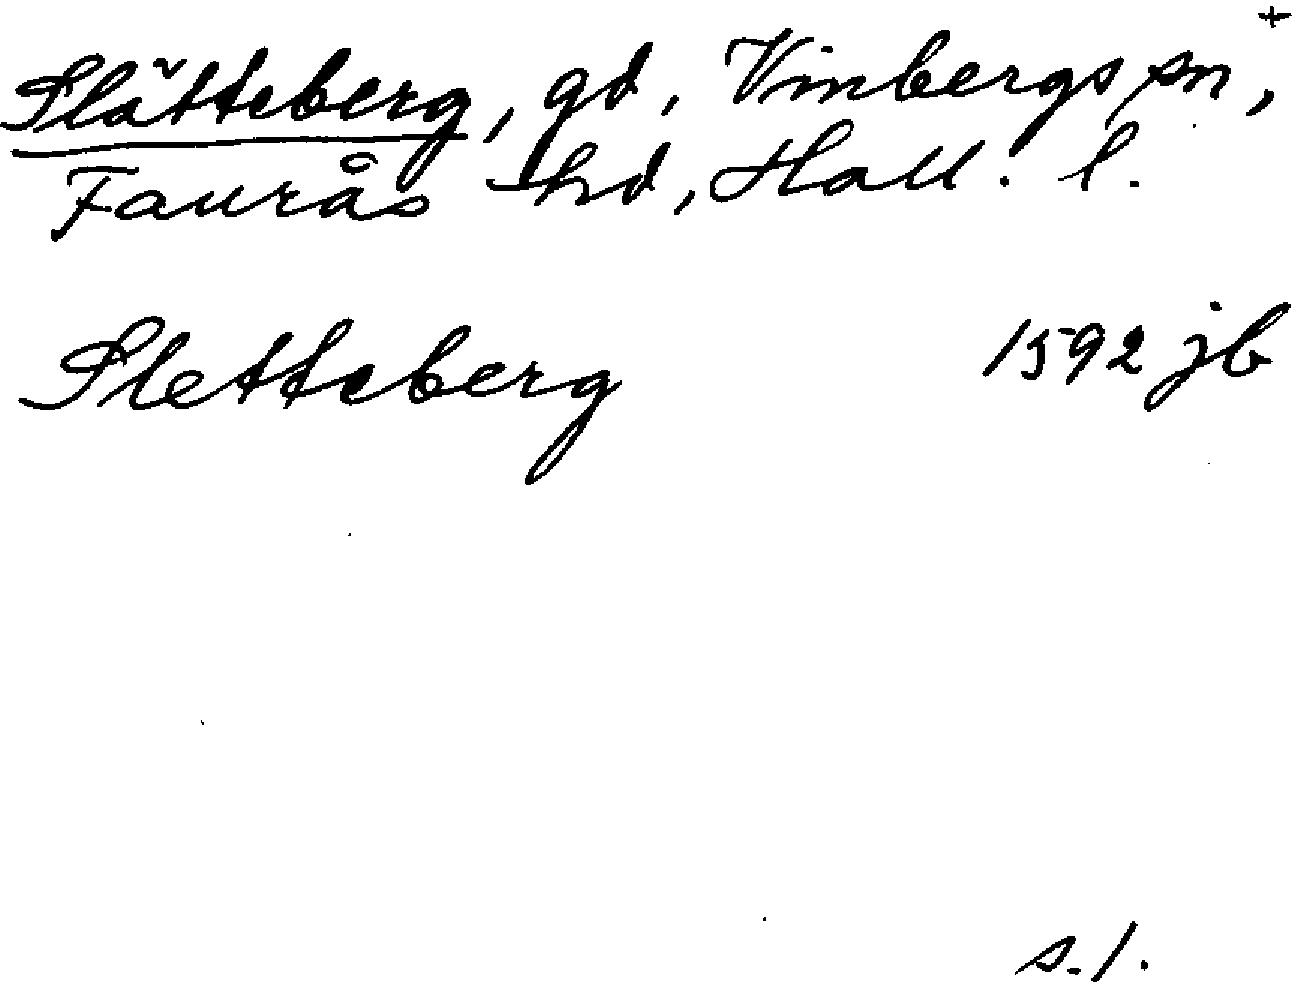 +
Slätteberg, gd, Vinbergs sn,
Faurås hd, Hall. l.
Sletteberg 1592 jb
s. 1.